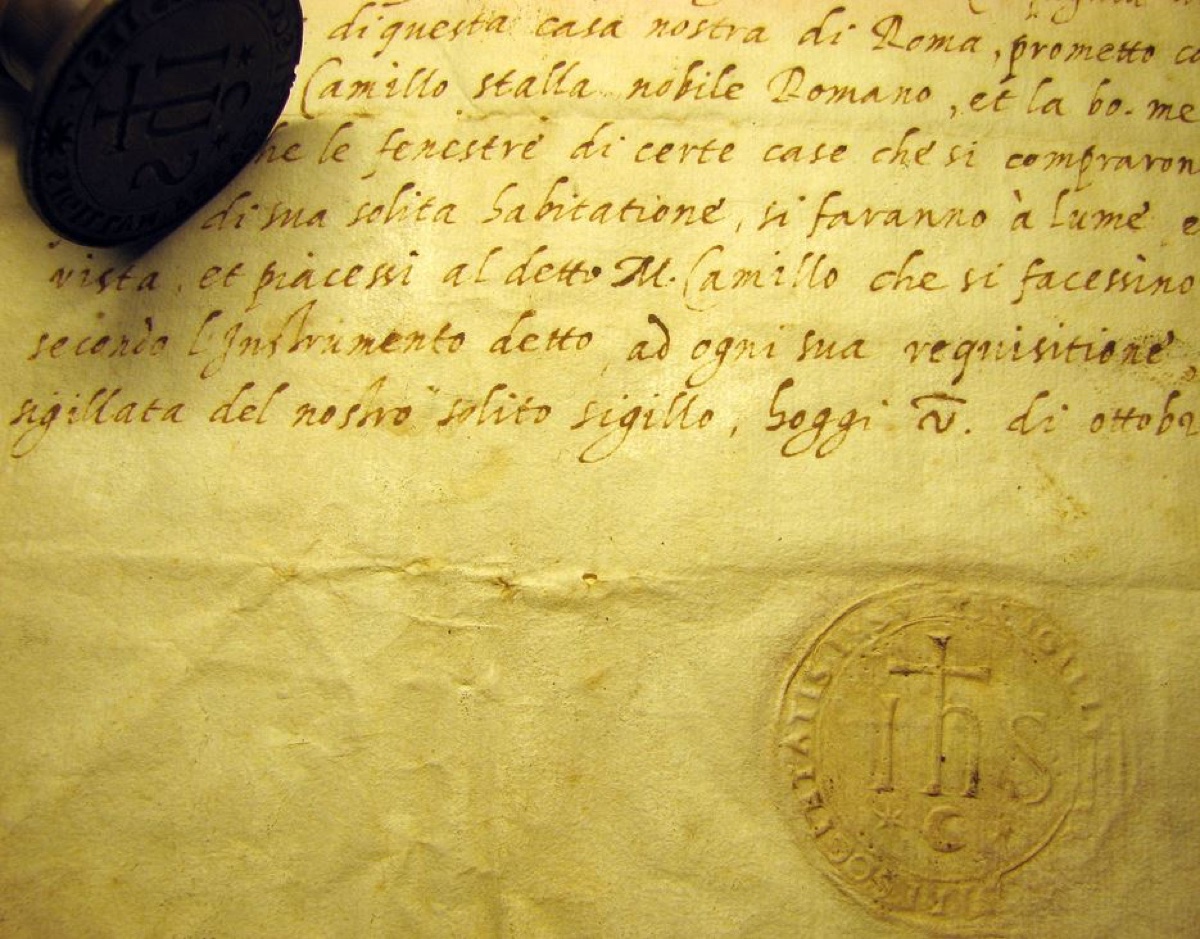 di questa casa nostra di Roma, prometto co
Camillo stalla nobile Romano, et la bo. me
he le fenestre di certe case che si compraron
di sua solita habitatione, si faranno à lume e
vista, et piacessi al detto M. Camillo che si facessino
secondo l'Instrumento detto, ad ogni sua requisitione,
sigillata del nostro solito sigillo, hoggi v. di ottobr
IHS
SOCIETATIS